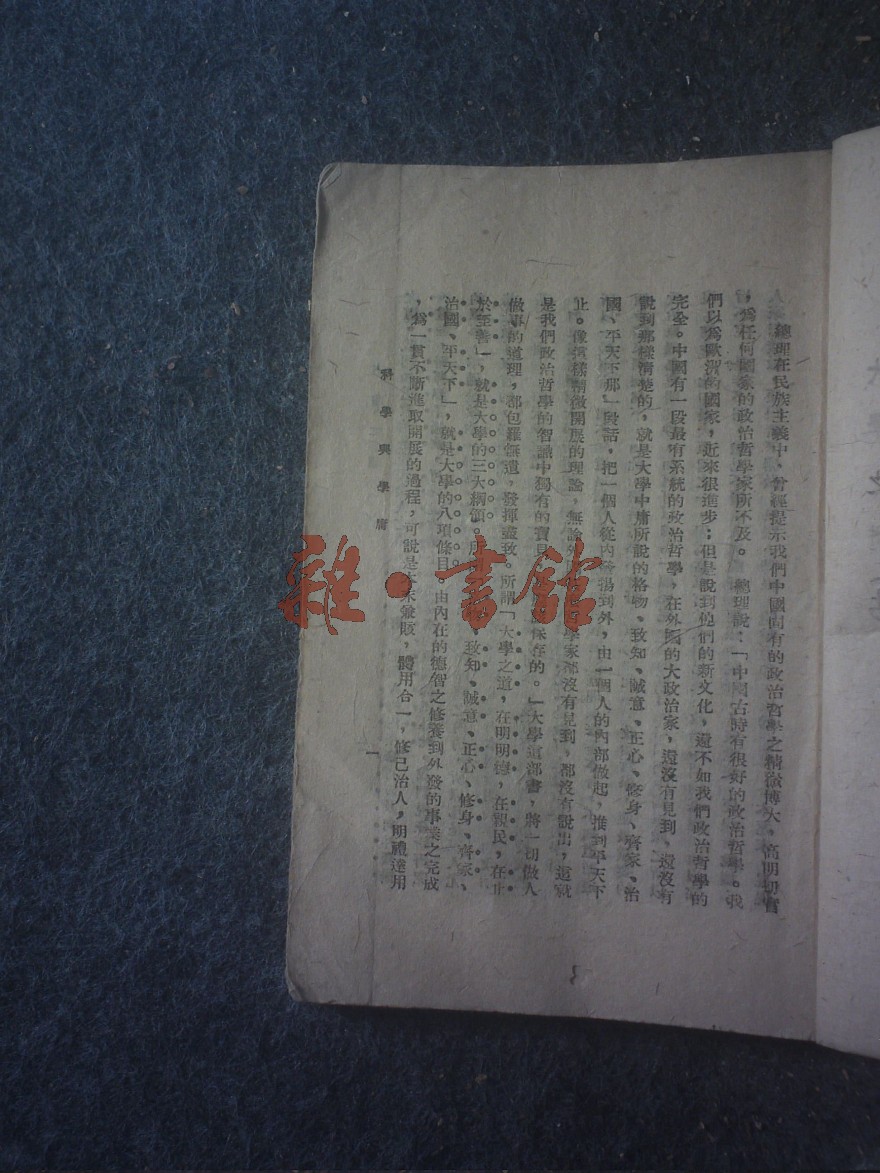 總理在民族主義中，曾經提示我們中國固有的政治哲學之精微博大，高明切實
，為任何國家的政治哲學家所不及。總理說：「中國古時有很好的政治哲學。我
們以為歐洲的國家，近來很進步；但是說到他們的新文化，還不如我們政治哲學的
完全。中國有一段最有系統的政治哲學，在外國的大政治家，還沒有見到，還沒有
說到那樣清楚的，就是大學中庸所說的格物、致知、誠意、正心、修身、齊家、治
國、平天下那一段話，把一個人從內發揚到外，由一個人的內部做起，推到平天下
止。像這樣精微開展的理論，無論外 學家都沒有見到，都沒有說出，這就
是我們政治哲學的智識中獨有的寶貝 保存的。」大學這部書，將一切做人
做事的道理，都包羅無遺，發揮盡致。所謂「大學之道，在明明德，在親民，在止
於至善」，就是大學的三大綱領。所 致知、誠意、正心、修身、齊家、
治國、平天下」，就是大學的八項條目。由內在的德智之修養到外發的事業之完成
，為一貫不斷進取開展的過程，可說是本末兼賅，體用合一，修己治人，明禮達用
科學與學庸
一
雜·書館